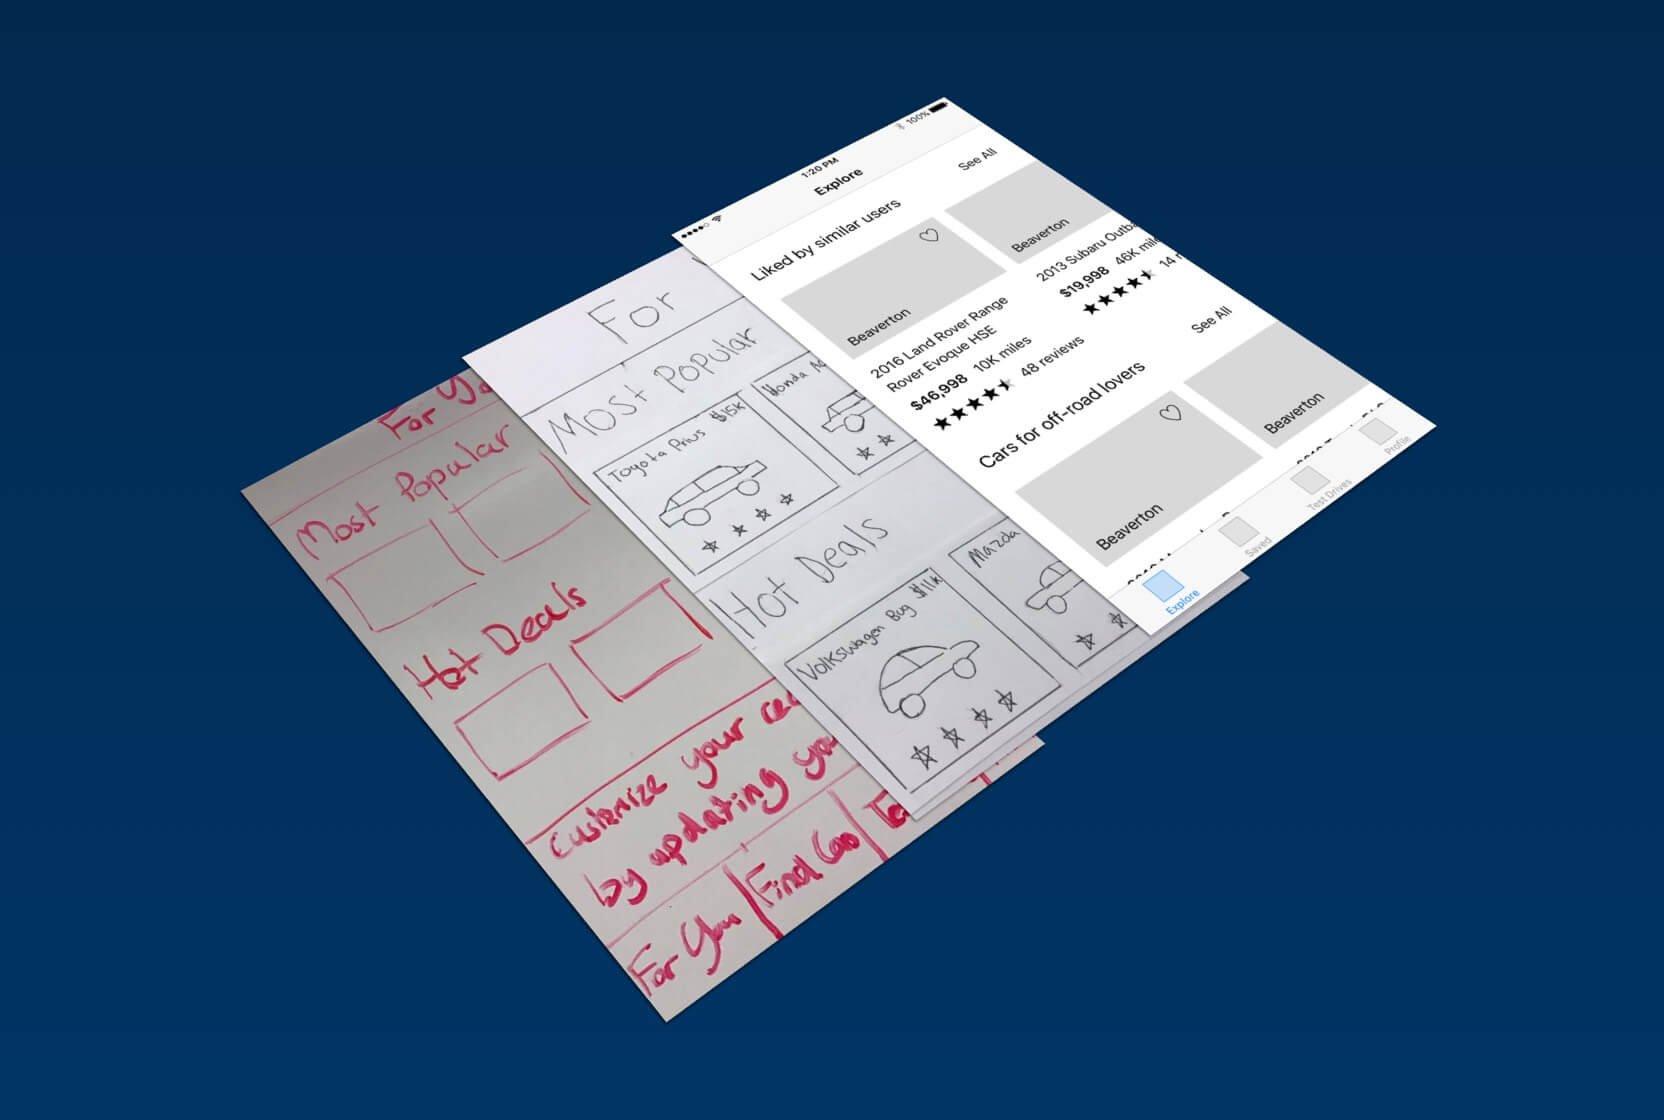 For
Most Popular
Hot Deals
Customize your
by updating
For You
Find Cars
For
Most Popular
Toyota Prius $15k
Honda
Hot Deals
Volkswagen Bug $11k
Mazda
1:20 PM
100%
Explore
Liked by similar users
See All
Beaverton
2016 Land Rover Range
Rover Evoque HSE
$46,998 10K miles
48 reviews
Beaverton
2013 Subaru
$19,998 46K
14
Cars for off-road lovers
See All
Beaverton
Beaverton
Explore
Saved
Test Drives
Profile